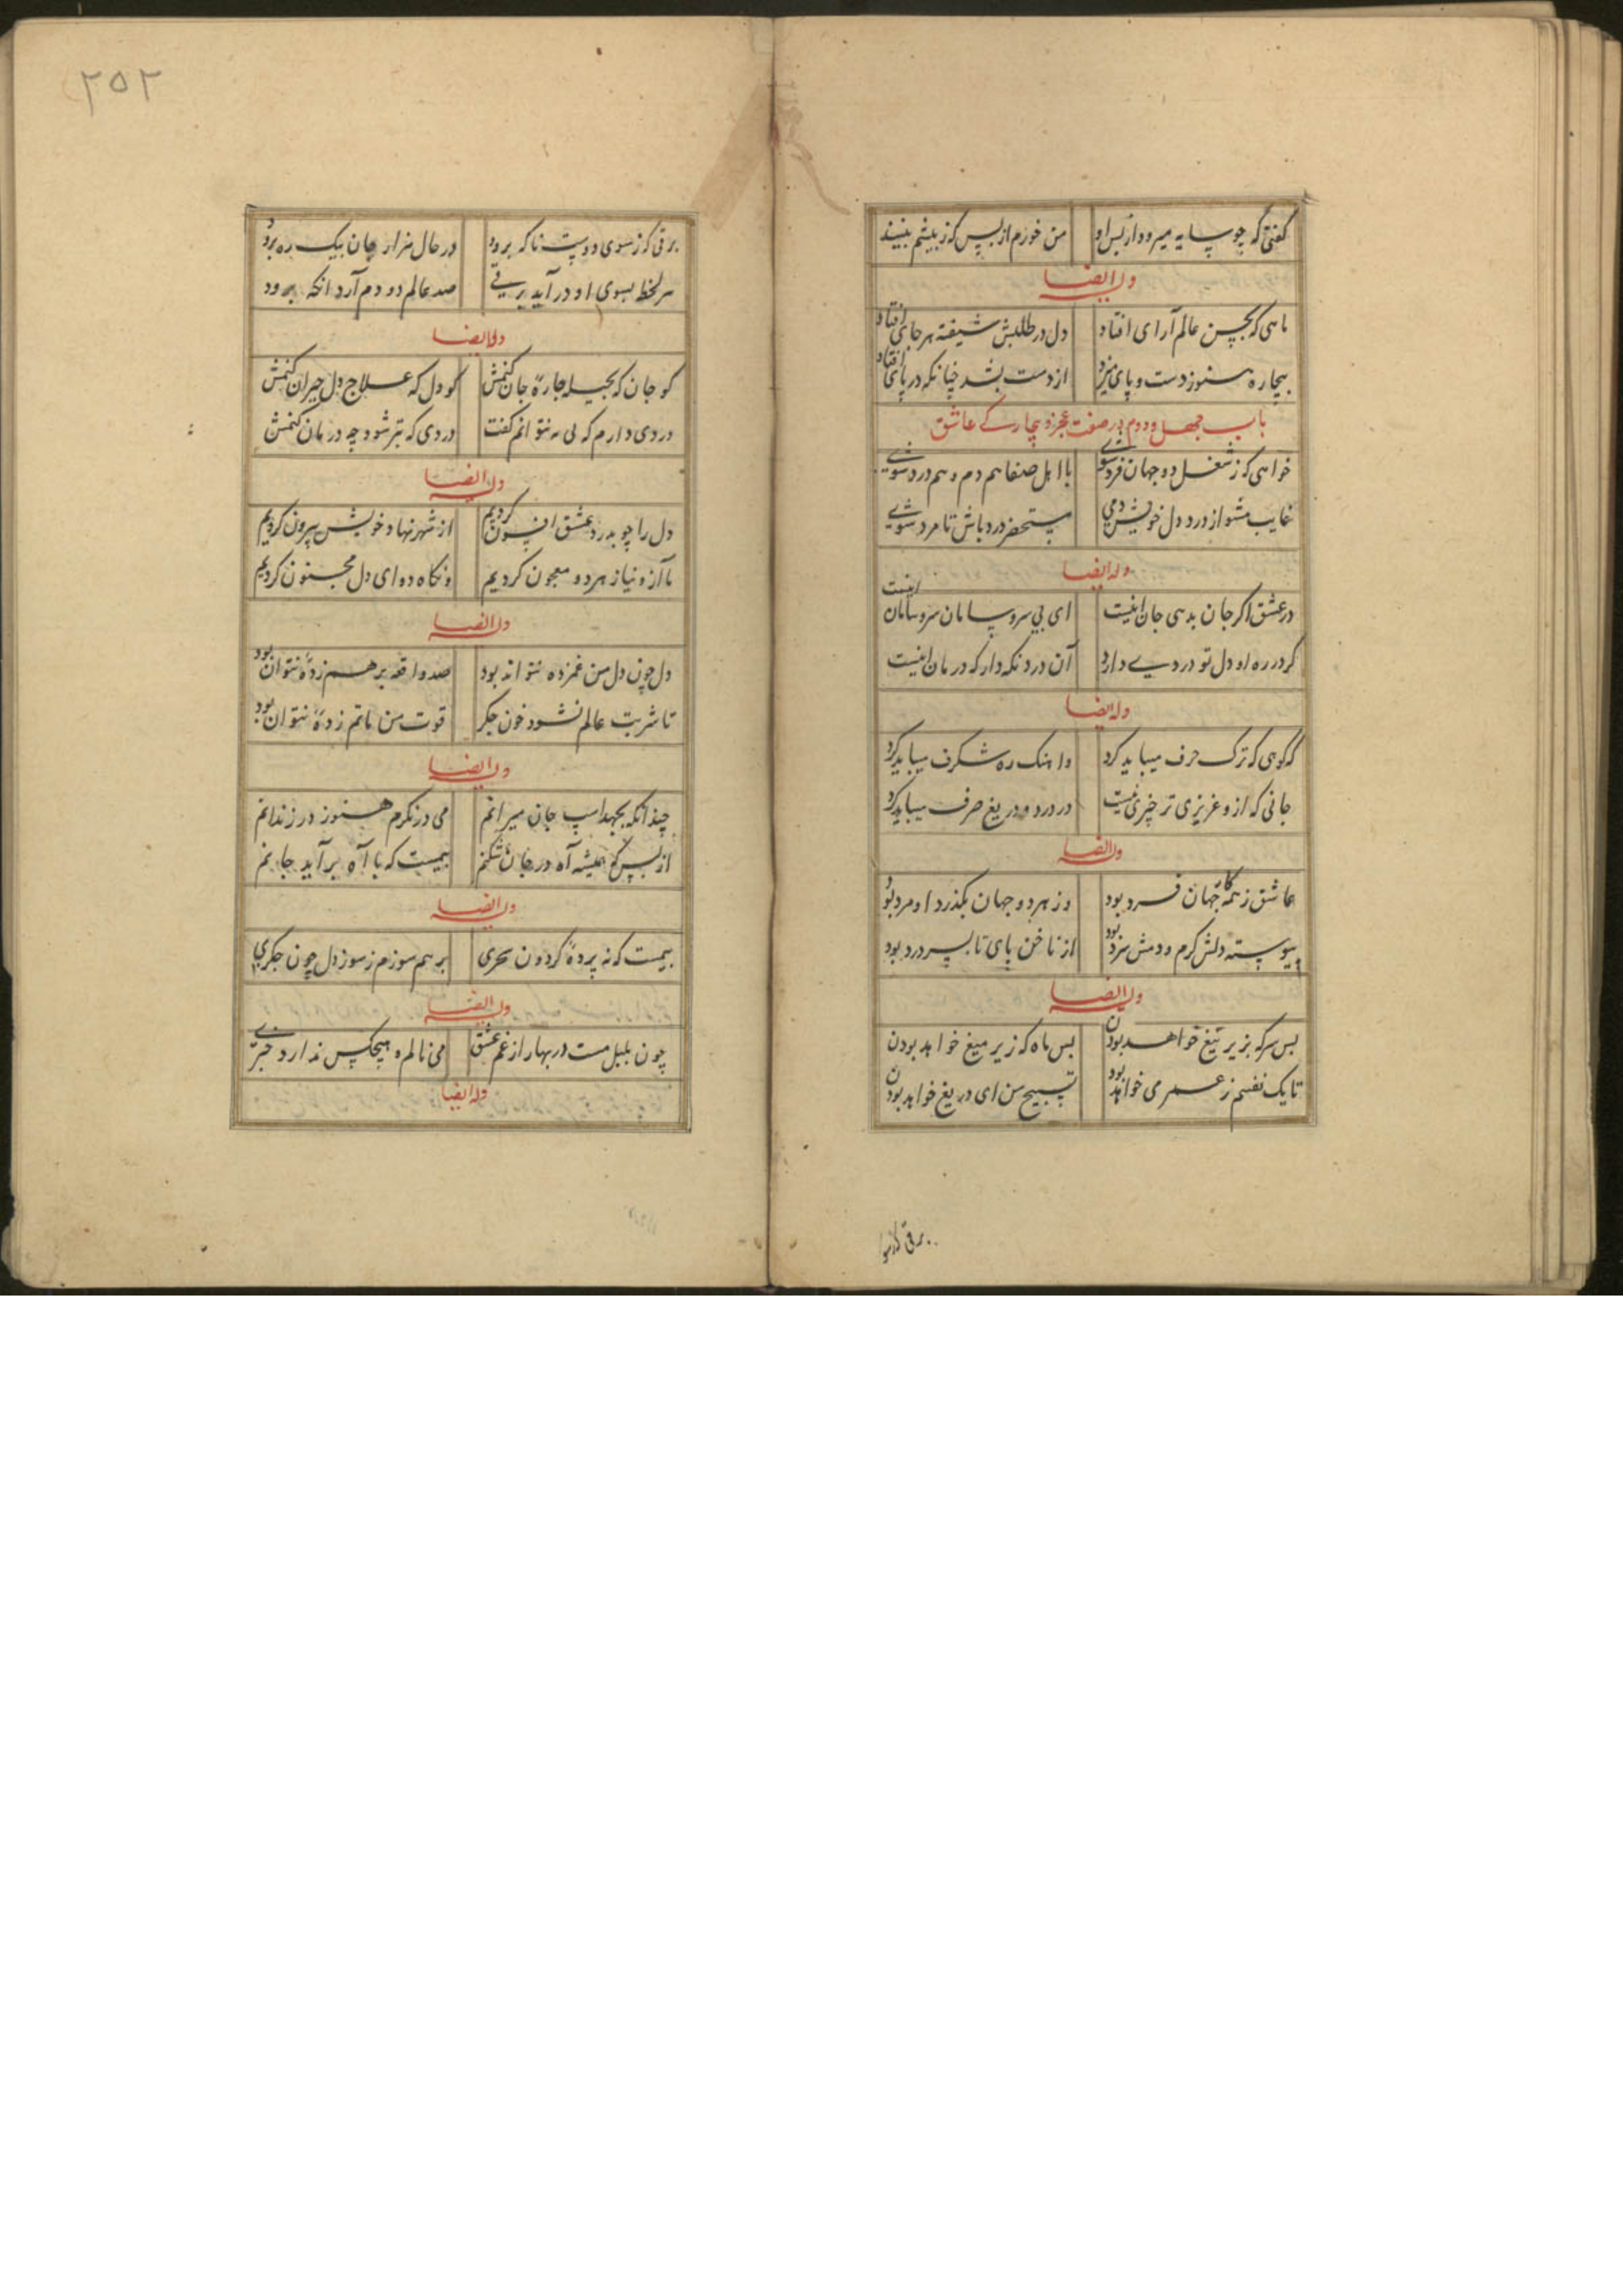 گفتی که چو سایه میرود از پس او من خورم از پس که ز پیشم بینند
وله ایضا
ماهی که بحسن عالم آرای افتاد دل در طلبش شیفته هر جای افتاد
بیچاره هنوز دست و پای میزد از دست بشد چنانکه در پای افتاد
باب چهل و دوم در صفت عجز و بیچارکی عاشق
خواهی که ز شغل دو جهان فرد شوی با اهل صفا هم دم و هم درد شوی
غایب مشو از درد دل خویش دمی مستحضر درد باش تا مرد شوی
وله ایضا
در عشق اکر جان بدهی جان اینست ای بی سر و سامان سر و سامان اینست
کر در ره او دل تو دردی دارد آن درد نکه دار که درمان اینست
وله ایضا
که کوهی که ترک حرف میباید کرد وا هنک ره شکرف میباید کرد
جانی که ازو عزیزی تر چیزی نیست در درد و دریغ صرف میباید کرد
وله ایضا
عاشق ز همه کار جهان فرد بود وز هر دو جهان بکذرد او مرد بود
پیوسته دلش کرم و دمش سرد بود از ناخن پای تا بسر درد بود
وله ایضا
بس سر که بزیر تیغ خواهد بودن بس ماه که زیر میغ خواهد بودن
تا یک نفسم ز عمر می خواهد بود تسبیح من ای دریغ خواهد بودن
برق کز سوی
۲۵۲
برقی که ز سوی دوست ناکه برود در حال هزار جان بیک ره برود
هر لحظه بسوی او در آید برقی صد عالم دو دم آرد انکه برود
وله ایضا
کو جان که بحیله چارهٔ جان کنمش کو دل که علاج دل حیران کنمش
دردی دارم که می نتوانم کفت دردی که بتر شود چه درمان کنمش
وله ایضا
دل را چو بدرد عشق افسون کردیم از شهر نهاد خویش بیرون کردیم
ما آز و نیاز هر دو معجون کردیم ونکاه دوای دل مجنون کردیم
وله ایضا
دل چون دل من غمزده نتواند بود صد واقعه بر هم زدهٔ نتوان بود
تا شربت عالم نشود خون جکر قوت من ماتم زدهٔ نتوان بود
وله ایضا
چندانکه بجهد اسپ جان میرانم می در نکرم هنوز در زندانم
از بس که همیشه آه در جان شکنم بیمست که با آه بر آید جانم
وله ایضا
بیمست که نه پردهٔ کردون سحری بر هم سوزم ز سوز دل چون جکری
وله ایضا
چون بلبل مست در بهار از غم عشق می نالم و هیچکس ندارد خبری
وله ایضا